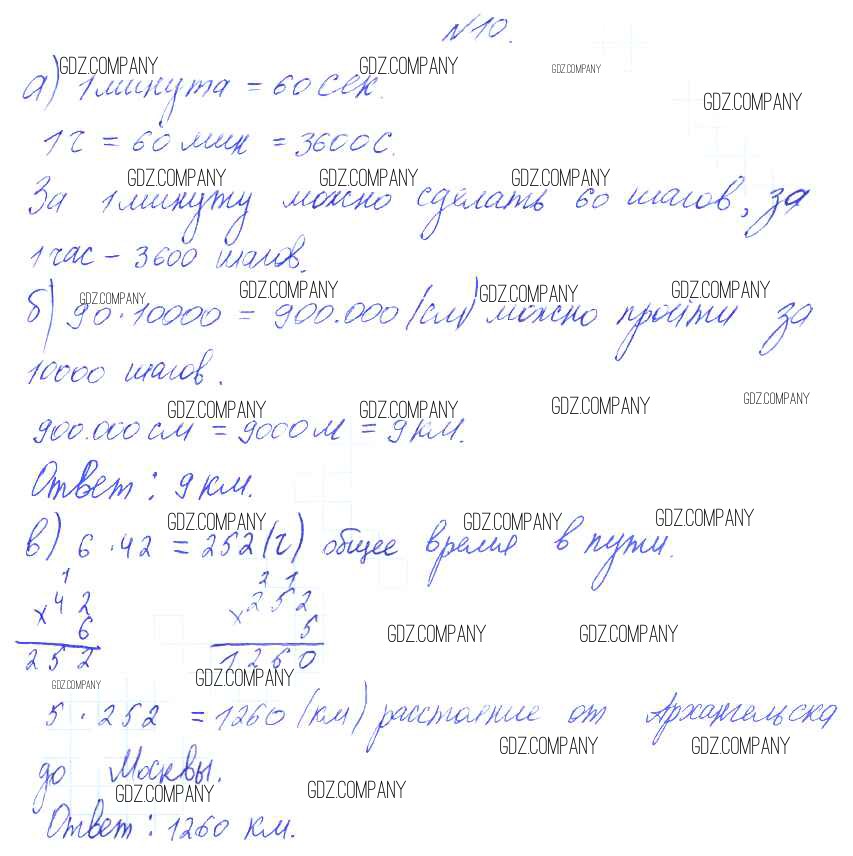 N10.
GDZ.COMPANY GDZ.COMPANY GDZ.COMPANY
а) 1 минута = 60 сек.
GDZ.COMPANY
1 ч = 60 мин = 3600 с.
GDZ.COMPANY GDZ.COMPANY GDZ.COMPANY
За 1 минуту можно сделать 60 шагов, за
1 час - 3600 шагов.
GDZ.COMPANY GDZ.COMPANY GDZ.COMPANY GDZ.COMPANY
б) 90 · 10000 = 900.000 (см) можно пройти за
10000 шагов.
GDZ.COMPANY GDZ.COMPANY GDZ.COMPANY GDZ.COMPANY
900.000 см = 9000 м = 9 км.
Ответ: 9 км.
GDZ.COMPANY GDZ.COMPANY GDZ.COMPANY
в) 6 · 42 = 252 (ч) общее время в пути.
1 2 1
x 42 x 252
6 5
GDZ.COMPANY GDZ.COMPANY
252 1260
GDZ.COMPANY GDZ.COMPANY
5 · 252 = 1260 (км) расстояние от Архангельска
GDZ.COMPANY GDZ.COMPANY
до Москвы.
GDZ.COMPANY GDZ.COMPANY
Ответ: 1260 км.